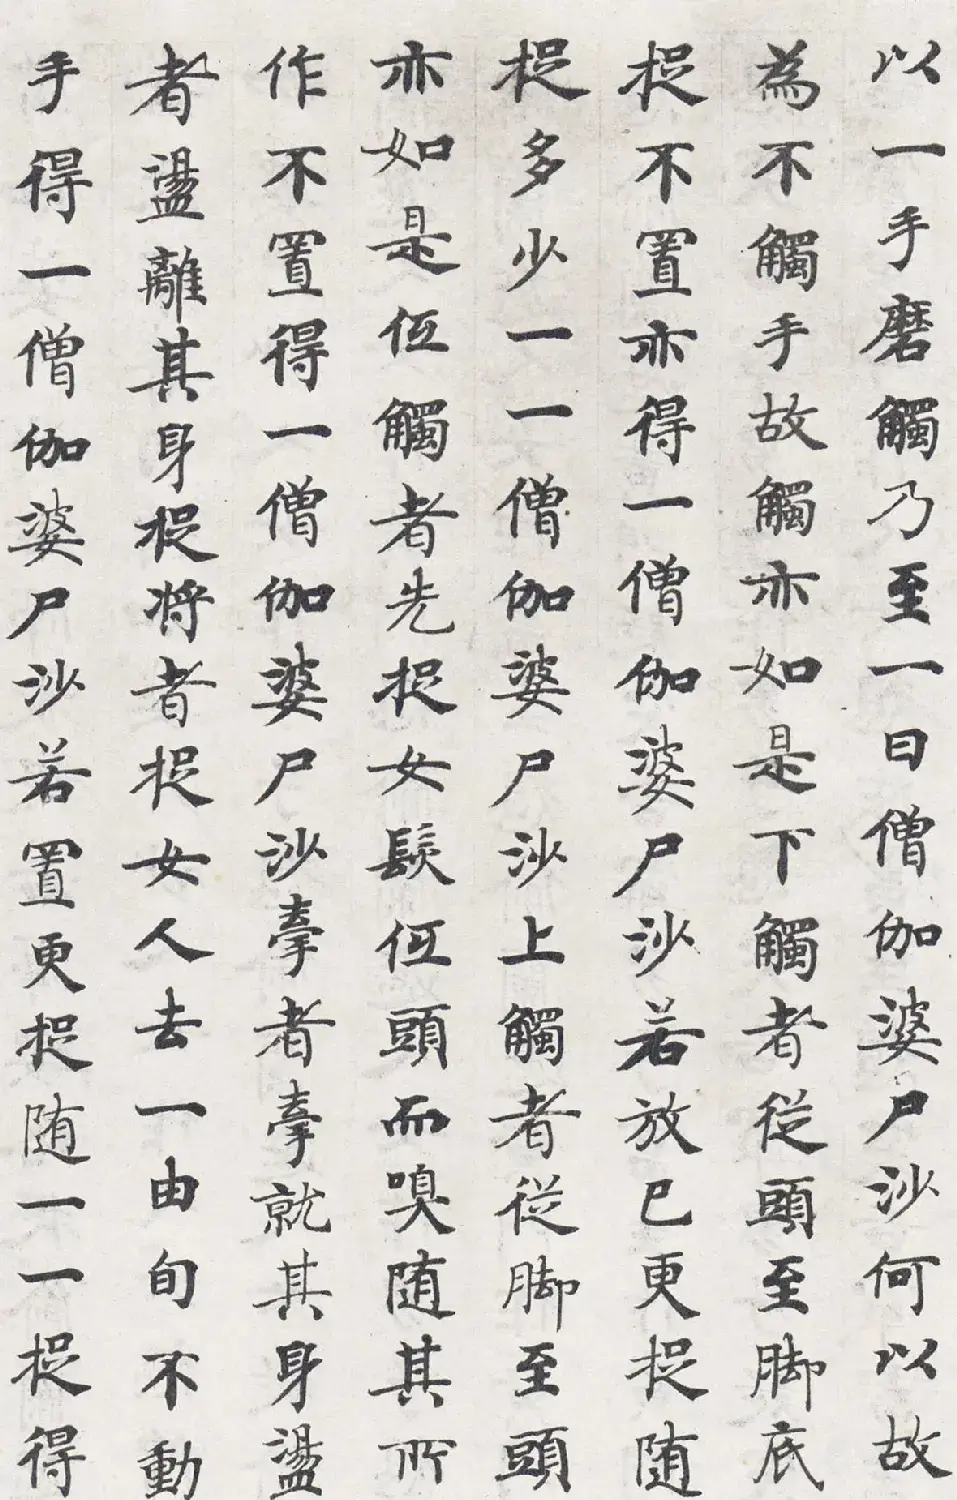 以一手磨觸乃至一日僧伽婆尸沙何以故
為不觸手故觸亦如是下觸者從頭至脚底
捉不置亦得一僧伽婆尸沙若放已更捉随
捉多少一一僧伽婆尸沙上觸者從脚至頭
亦如是伍觸者先捉女髮伍頭而嗅随其所
作不置得一僧伽婆尸沙牽者牽就其身盪
者盪離其身捉将者捉女人去一由旬不動
手得一僧伽婆尸沙若置更捉随一一捉得